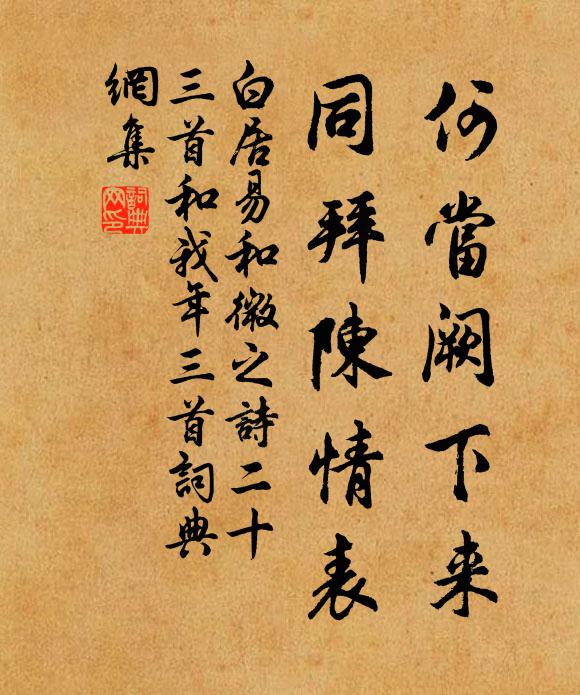 何當阙下来
同拜陳情表
白居易和微之詩二十
三首和我年三首詞典
網集
詞典
网印